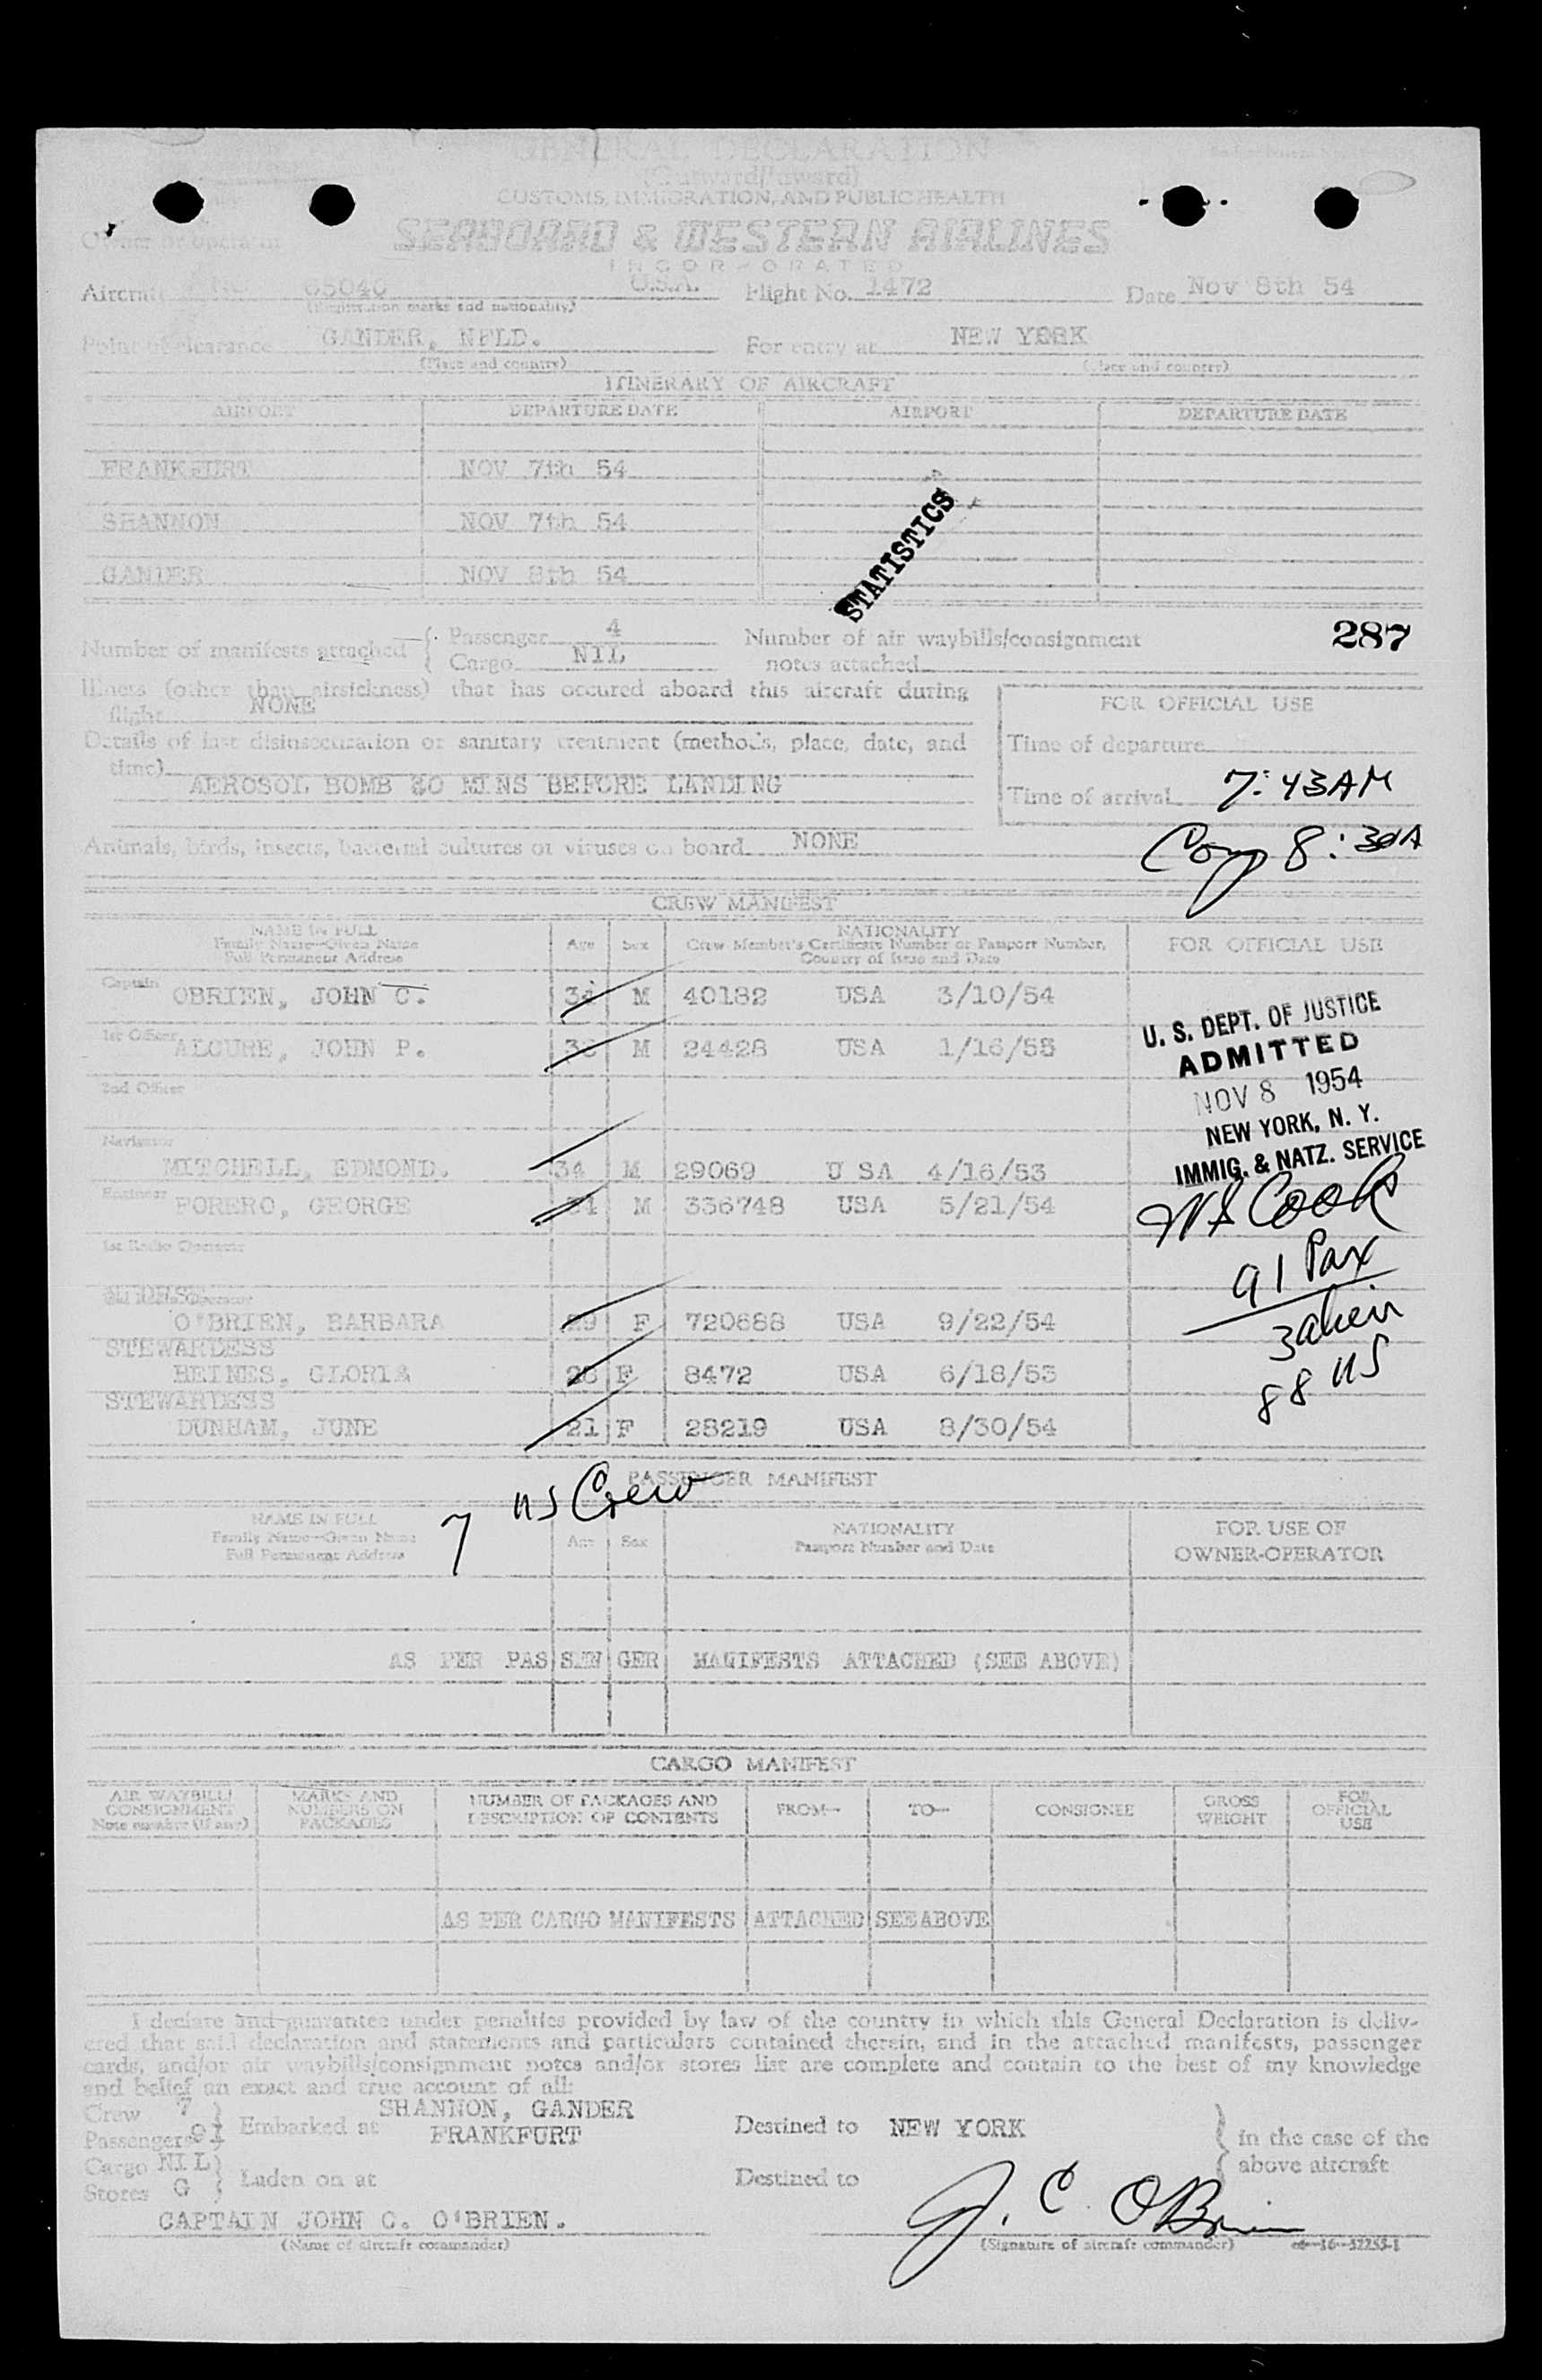 GENERAL DECLARATION
(Outward/Inward)
CUSTOMS, IMMIGRATION, AND PUBLIC HEALTH
Owner or operator SEABOARD & WESTERN AIRLINES
INCORPORATED
Aircraft U.S.A. Flight No. 1472 Date Nov 8th 54
(Registration marks and nationality)
Point of clearance GANDER, NFLD. For entry at NEW YORK
(Place and country) (Place and country)
ITINERARY OF AIRCRAFT
AIRPORT DEPARTURE DATE AIRPORT DEPARTURE DATE
FRANKFURT NOV 7th 54
SHANNON NOV 7th 54
GANDER NOV 8th 54
STATISTICS
Number of manifests attached { Passenger 4 Number of air waybills/consignment 287
Cargo NIL notes attached
Illness (other than airsickness) that has occured aboard this aircraft during
flight NONE
FOR OFFICIAL USE
Details of last disinsectization or sanitary treatment (methods, place, date, and Time of departure
time)
AEROSOL BOMB MINS BEFORE LANDING Time of arrival 7:43AM
Animals, birds, insects, bacterial cultures or viruses on board NONE 8:30A
CREW MANIFEST
NAME IN FULL
Family Name—Given Name
Full Permanent Address
Age Sex
NATIONALITY
Crew Member's Certificate Number or Passport Number,
Country of Issue and Date
FOR OFFICIAL USE
Captain OBRIEN, JOHN C. 34 M 40182 USA 3/10/54
1st Officer ALCURE, JOHN P. M 24428 USA 1/16/53
2nd Officer
Navigator
MITCHELL, EDMOND. 34 M 29069 U SA 4/16/53
Engineer FORERO, GEORGE M 336748 USA 5/21/54
1st Radio Operator
O'BRIEN, BARBARA 29 F 720688 USA 9/22/54
STEWARDESS
HEINES, GLORIA F 8472 USA 6/18/53
STEWARDESS
DUNHAM, JUNE 21 F 28219 USA 8/30/54
U. S. DEPT. OF JUSTICE
ADMITTED
NOV 8 1954
NEW YORK, N. Y.
IMMIG. & NATZ. SERVICE
Cook
91 Pax
3 alien
88 US
7 US Crew
PASSENGER MANIFEST
NAME IN FULL
Family Name—Given Name
Full Permanent Address
Age Sex
NATIONALITY
Passport Number and Date
FOR USE OF
OWNER-OPERATOR
AS PER PAS SEN GER MANIFESTS ATTACHED (SEE ABOVE)
CARGO MANIFEST
AIR WAYBILL/
CONSIGNMENT
Note number (if any)
MARKS AND
NUMBERS ON
PACKAGES
NUMBER OF PACKAGES AND
DESCRIPTION OF CONTENTS
FROM— TO— CONSIGNEE
GROSS
WEIGHT
FOR
OFFICIAL
USE
AS PER CARGO MANIFESTS ATTACHED SEE ABOVE
I declare and guarantee under penalties provided by law of the country in which this General Declaration is deliv-
ered that said declaration and statements and particulars contained therein, and in the attached manifests, passenger
cards, and/or air waybills/consignment notes and/or stores list are complete and contain to the best of my knowledge
and belief an exact and true account of all:
Crew 7 SHANNON, GANDER
Passengers 91 Embarked at FRANKFURT Destined to NEW YORK in the case of the
Cargo NIL above aircraft
Stores G Laden on at Destined to
CAPTAIN JOHN C. O'BRIEN. J. C. OBrien
(Name of aircraft commander) (Signature of aircraft commander) 16—52255-1